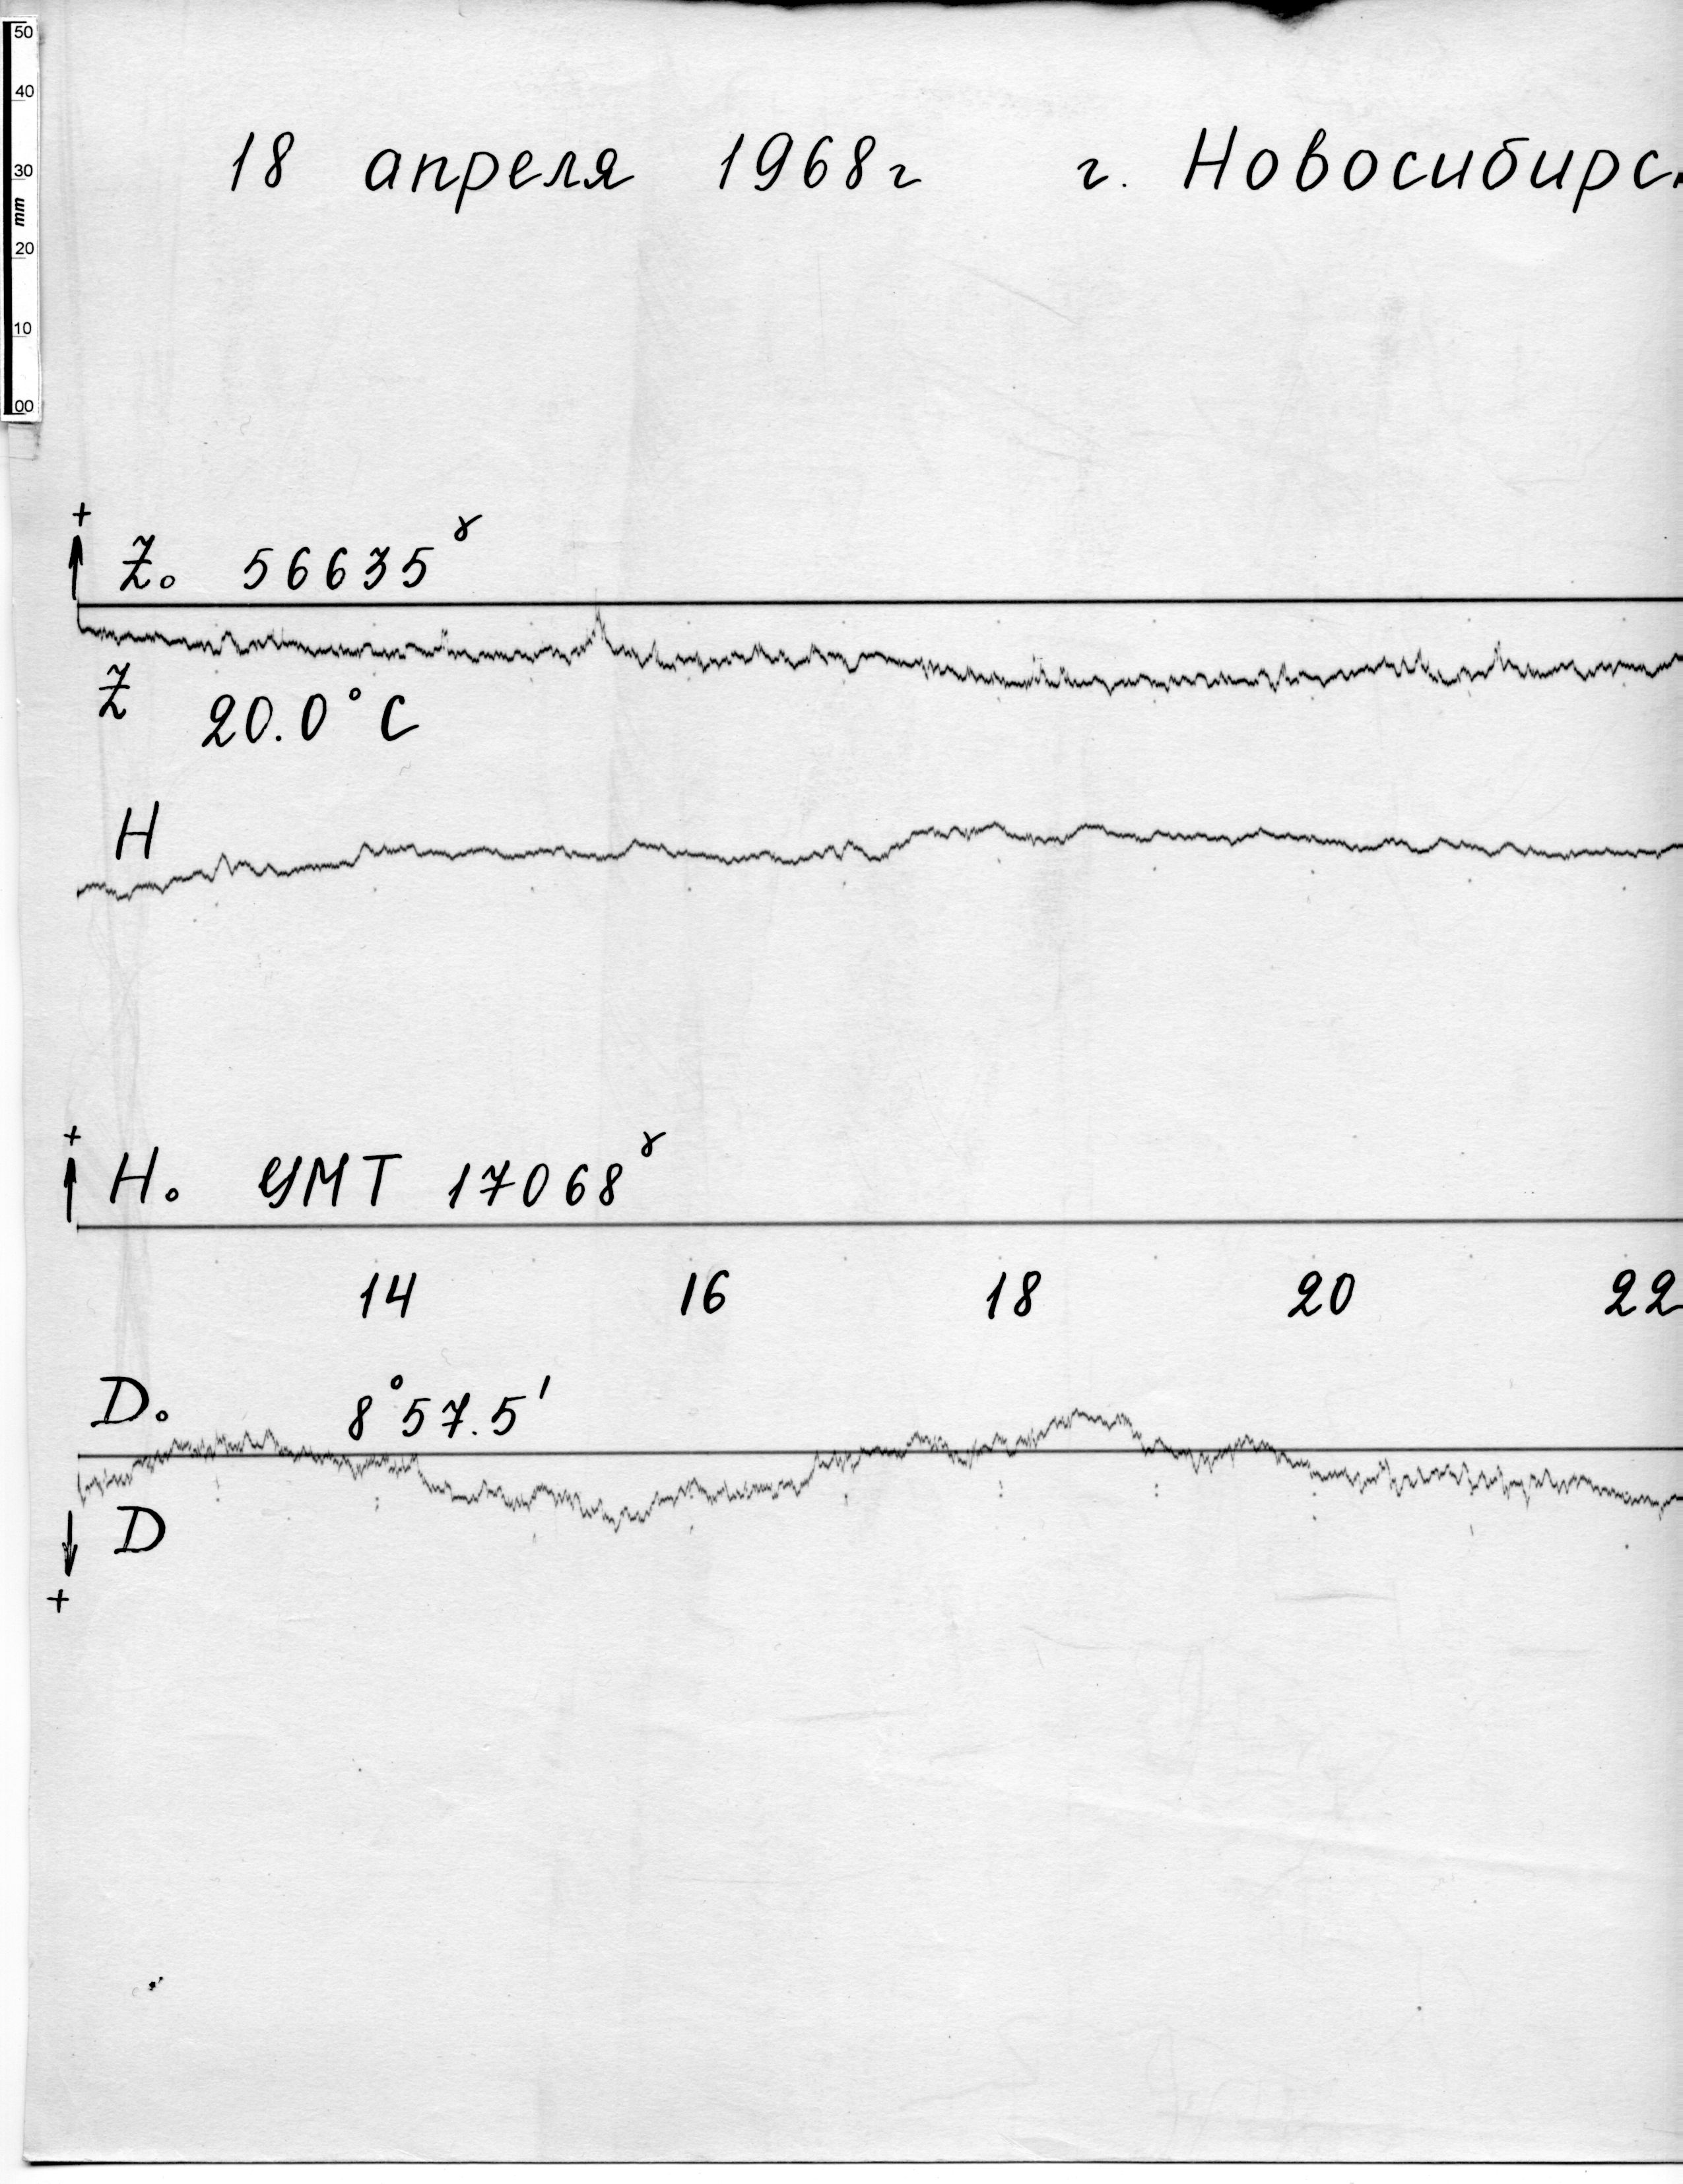 50
40
30
mm
20
10
00
18 апреля 1968г г. Новосибирс
+
Z₀ 56635ᵞ
Z 20.0°C
H
+
H₀ УМТ 17068ᵞ
14 16 18 20 22
D₀ 8°57.5'
D
+